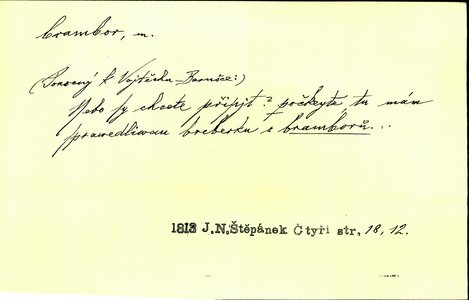 brambor, m.
k Vojtěchu
Nebo sy chcete připjt? počkeyte, tu mám
sprawedliwau breberku z bramborů...
1813 J.N.Štěpánek Čtyři str, 18, 12.